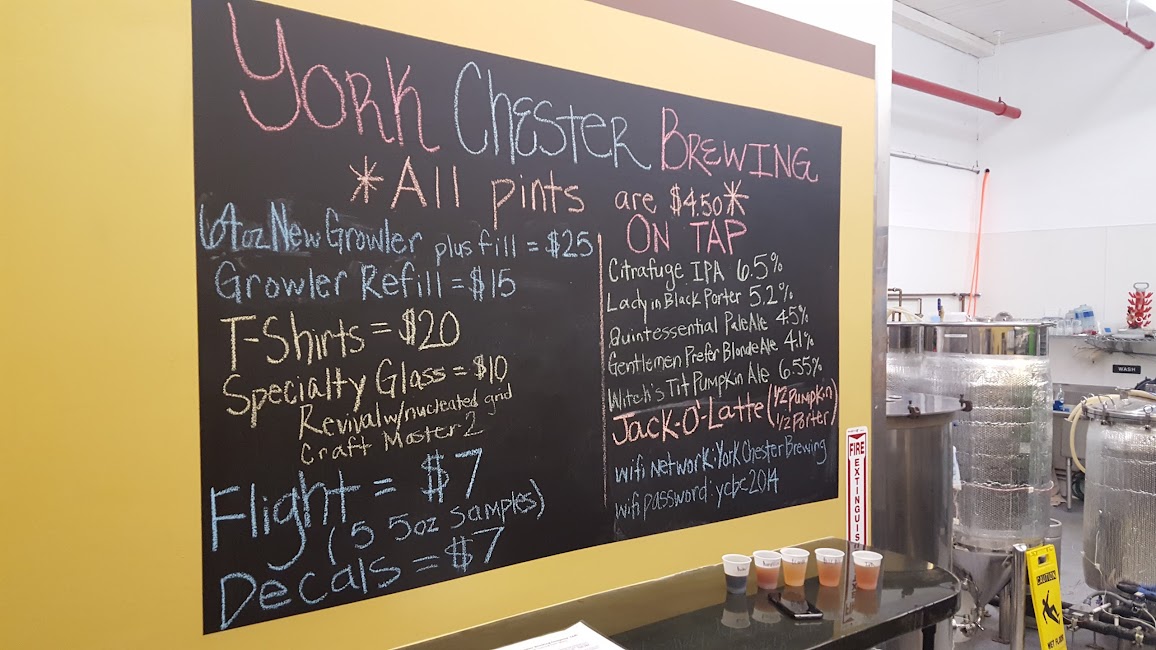 York Chester Brewing
*All pints are $4.50*
64oz New Growler plus fill = $25
Growler Refill = $15
T-Shirts = $20
Specialty Glass = $10
Revival w/nucleated grid
Craft Master 2
Flight = $7
(5 5oz samples)
Decals = $7
ON TAP
Citrafuge IPA 6.5%
Lady in Black Porter 5.2%
Quintessential Pale Ale 4.5%
Gentlemen Prefer Blonde Ale 4.1%
Witch's Tit Pumpkin Ale 6.55%
Jack-O'-Latte (1/2 Pumpkin
1/2 Porter)
wifi Network: York Chester Brewing
wifi password: ycbc2014
FIRE
EXTINGUIS
WASH
WET FLOOR